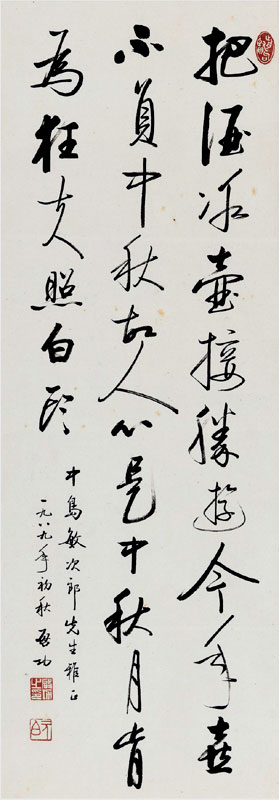 把酒冰壺接勝遊今年喜
不負中秋故人心是中秋月肯
為狂夫照白頭
中島敏次郎先生雅正
一九八九年初秋 啟功
元白